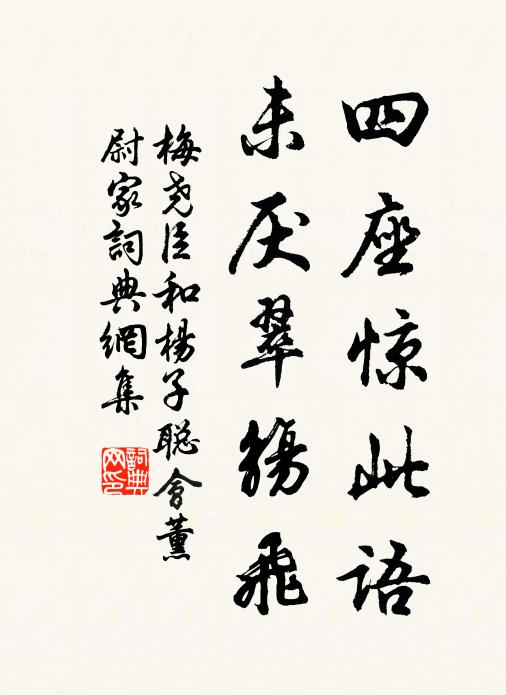 四座惊此语
未厌翠觞飞
梅尧臣和楊子聪會董
尉家詞典網集
詞典网印